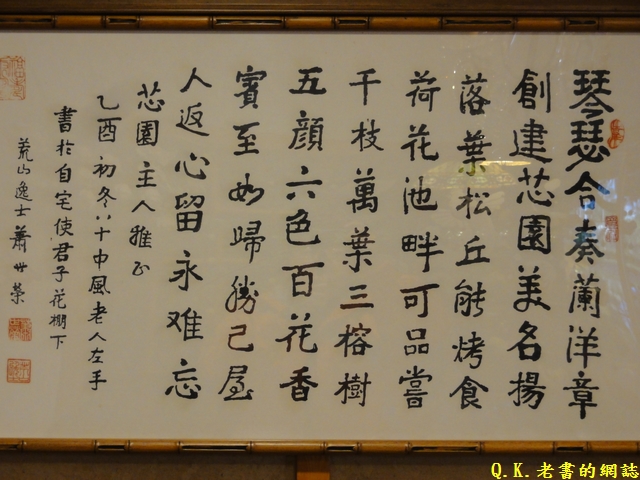 琴瑟合奏蘭洋章
創建芯園美名揚
落葉松丘能烤食
荷花池畔可品嘗
千枝萬葉三榕樹
五顏六色百花香
賓至如歸勝己屋
人返心留永难忘
芯園主人雅正
乙酉初冬八十中風老人左手
書於自宅使君子花棚下
荒山逸士蕭世荣
Q.K.老書的網誌